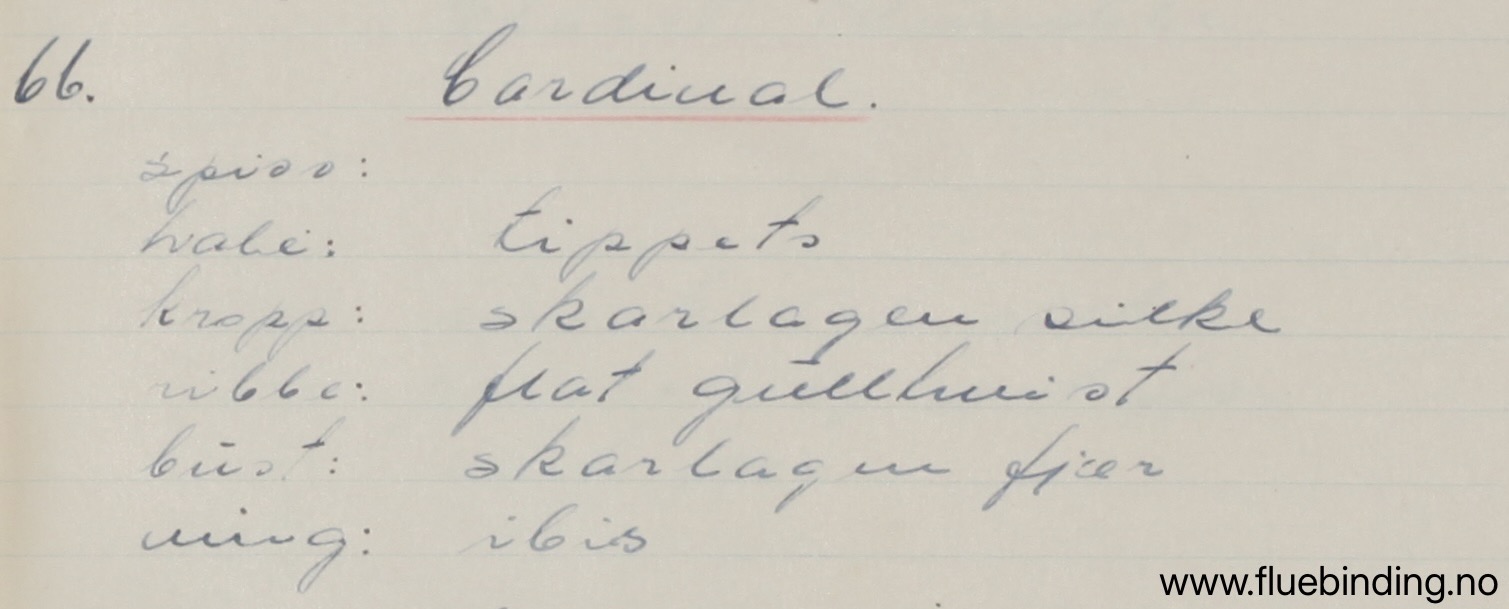 66. Cardinal.
spiss:
hale: tippets
kropp: skarlagen silke
ribbe: flat gulltvist
bust: skarlagen fjær
ving: ibis
www.fluebinding.no